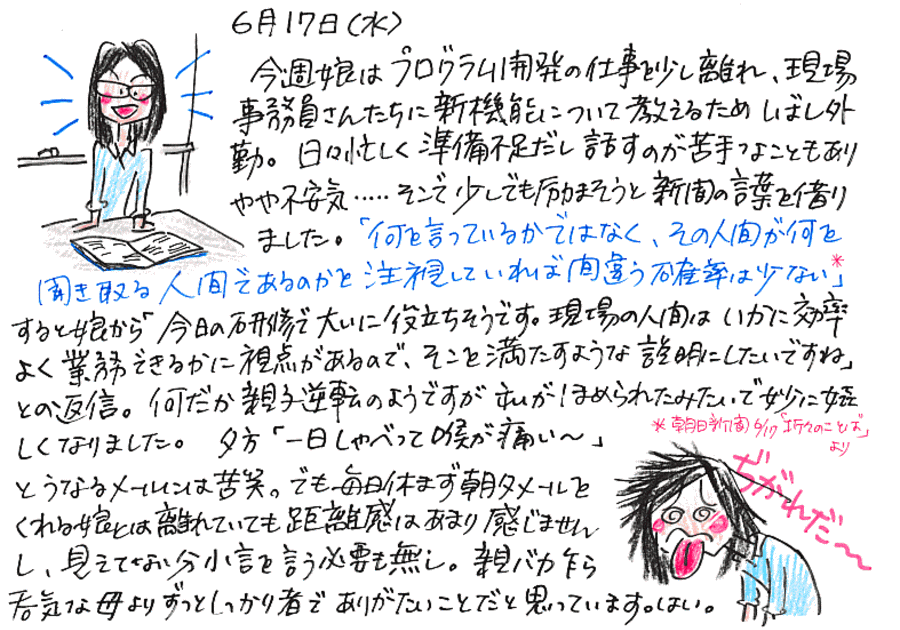 6月17日(水)
今週娘はプログラム開発の仕事を少し離れ、現場
事務員さんたちに新機能について教えるためしばし外
勤。日々忙しく準備不足だし話すのが苦手なこともあり
やや不安気……そこで少しでも励まそうと新聞の言葉を借り
ました。「何を言っているかではなく、その人間が何を
聞き取る人間であるのかを注視していれば間違う確率は少ない」*
すると娘から「今日の研修で大いに役立ちそうです。現場の人間はいかに効率
よく業務できるかに視点があるので、そこを満たすような説明にしたいですね」
との返信。何だか親子逆転のようですが私がほめられたみたいで妙に嬉
しくなりました。 夕方「一日しゃべって喉が痛い〜」
*朝日新聞6/17「折々のことば」
より
とうなるメールには苦笑。でも毎日休まず朝夕メールを
くれる娘とは離れていても距離感はあまり感じません
し、見えてない分小言を言う必要も無し。親バカ乍ら
呑気な母よりずっとしっかり者でありがたいことだと思っています。はい。
ぢがれだ〜